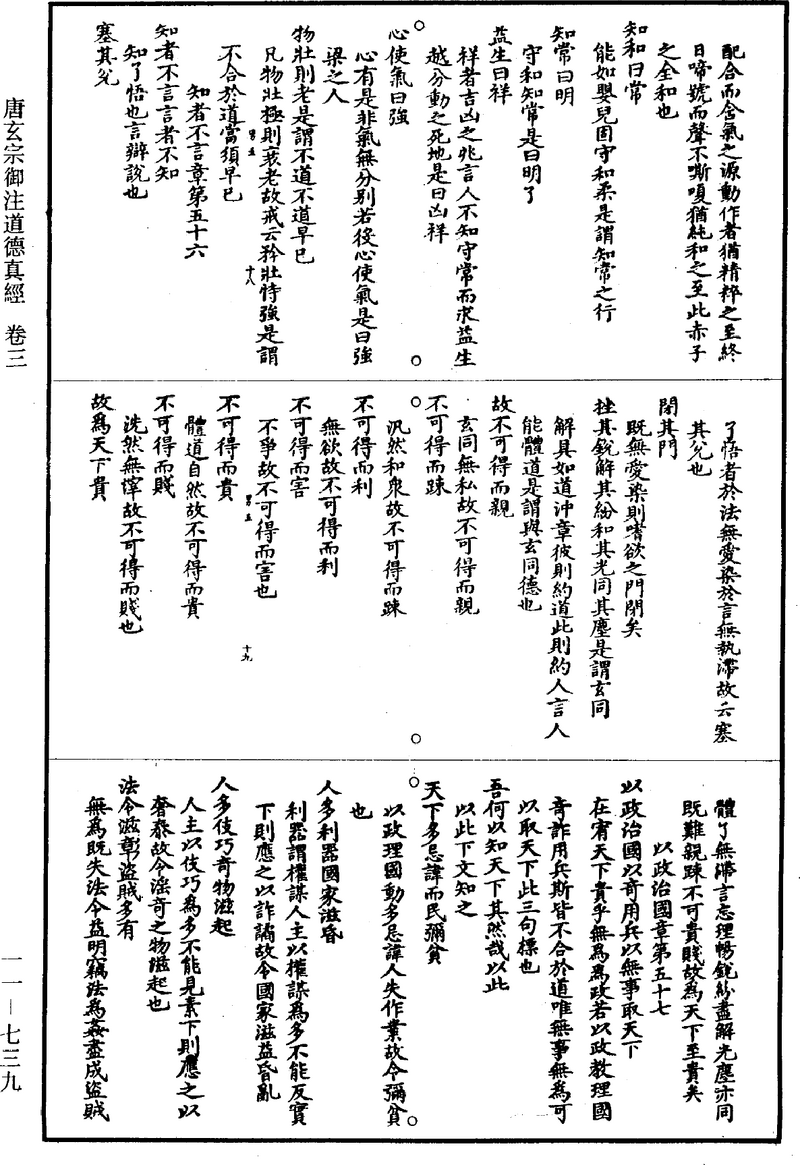 配合而含氣之源動作者猶精粹之至終
日啼號而聲不嘶嗄猶純和之至此赤子
之全和也
知和曰常
能如嬰兒固守和柔是謂知常之行
知常曰明
守和知常是曰明了
益生曰祥
祥者吉凶之兆言人不知守常而求益生
越分動之死地是曰凶祥
心使氣曰強
心有是非氣無分別若役心使氣是曰強
梁之人
物壯則老是謂不道不道早已
凡物壯極則衰老故戒云矜壯恃強是謂
不合於道當須早已
知者不言章第五十六
知者不言言者不知
知了悟也言辯說也
塞其兌
十八
了悟者於法無愛染於言無執滯故云塞
其兌也
閉其門
既無愛染則嗜欲之門閉矣
挫其銳解其紛和其光同其塵是謂玄同
解具如道沖章彼則約道此則約人言人
能體道是謂與玄同德也
故不可得而親
玄同無私故不可得而親
不可得而踈
汎然和衆故不可得而踈
不可得而利
無欲故不可得而利
不可得而害
不爭故不可得而害也
不可得而貴
體道自然故不可得而貴
不可得而賤
洗然無滓故不可得而賤也
故爲天下貴
十九
體了無滯言忘理暢銳紛盡解光塵亦同
既難親踈不可貴賤故爲天下至貴矣
以政治國章第五十七
以政治國以奇用兵以無事取天下
在宥天下貴乎無爲爲政若以政教理國
奇詐用兵斯皆不合於道唯無事無爲可
以取天下此三句標也
吾何以知天下其然哉以此
以此下文知之
天下多忌諱而民彌貧
以政理國動多忌諱人失作業故令彌貧
也
人多利器國家滋昏
利器謂權謀人主以權謀爲多不能反實
下則應之以詐譎故令國家滋益昏亂
人多伎巧奇物滋起
人主以伎巧爲多不能見素下則應之以
奢泰故令淫奇之物滋起也
法令滋彰盜賊多有
無爲既失法令益明竊法爲姦盡成盜賊
唐玄宗御注道德真經 卷三
一一－七三九